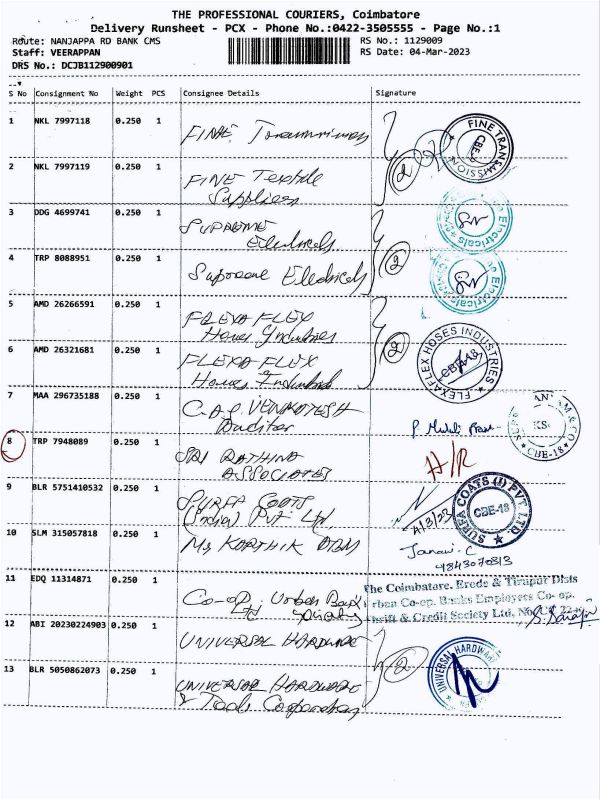 THE PROFESSIONAL COURIERS, Coimbatore
Delivery Runsheet - PCX - Phone No.:0422-3505555 - Page No.:1
Route: NANJAPPA RD BANK CMS
RS No.: 1129009
Staff: VEERAPPAN
RS Date: 04-Mar-2023
DRS No.: DCJB112900901
S No Consignment No Weight PCS Consignee Details Signature
1 NKL 7997118 0.250 1 FINE
FINE TRANSMISSION CBE
2 NKL 7997119 0.250 1 FINE Textile
Suppliers
2
3 DDG 4699741 0.250 1 SUPREME
Electricals
Electricals
4 TRP 8088951 0.250 1 Supreme Electricals
2
Electricals
5 AMD 26266591 0.250 1 FLEXA FLEX
Hoses Industries
6 AMD 26321681 0.250 1 FLEXA FLEX
Hoses Industries
2
FLEXAFLEX HOSES INDUSTRIES
7 MAA 296735188 0.250 1 C.A.P. VENKATESH
Auditor
& CO. CBE-18
8 TRP 7948089 0.250 1 SRI RATHINA
ASSOCIATES
H/R
9 BLR 5751410532 0.250 1 SURFA COATS
(India) Pvt Ltd
4/3/23
SURFA COATS (I) PVT LTD CBE-18
10 SLM 315057818 0.250 1 Mr KARTHIK
Janani. C
11 EDQ 11314871 0.250 1 Co-op. Urban Bank
Ltd
The Coimbatore, Erode & Tirupur Dists
Urban Co-op. Banks Employees Co-op.
Thrift & Credit Society Ltd.
12 ABI 20230224903 0.250 1 UNIVERSAL HARDWARE
13 BLR 5050862073 0.250 1 UNIVERSAL HARDWARE
& Tools Corporation
2
UNIVERSAL HARDWARE